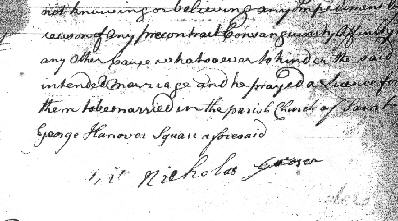 not knowing or believing any Impediment by
reason of any precontract Consanguinity Affinity
any other cause whatsoever to hinder the said
intended marriage and he prayed a Licence for
them to be married in the parish Church of Saint
George Hanover Square aforesaid
Nicholas